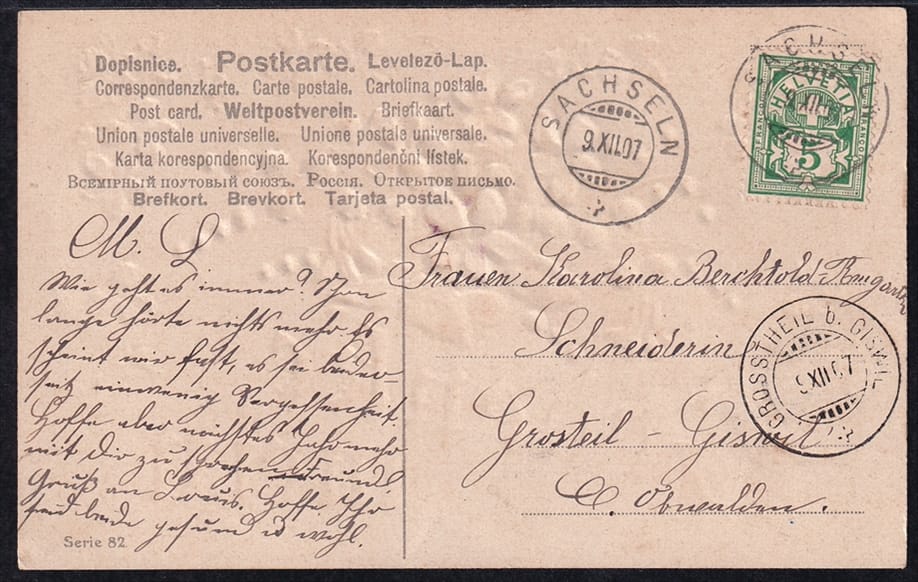 Dopisnice. Postkarte. Levelező-Lap.
Correspondenzkarte. Carte postale. Cartolina postale.
Post card. Weltpostverein. Briefkaart.
Union postale universelle. Unione postale universale.
Karta korespondencyjna. Korespondenční lístek.
Всемірный поутовый союзъ. Россія. Открытое письмо.
Brefkort. Brevkort. Tarjeta postal.
SACHSELN
9.XII.07
SACHSELN
XII
HELVETIA
FRANCO FRANCO
5
M. L
Wie geht es immer? Schon
lange hörte nichts mehr Es
scheint mir fast, es sei beider-
seit einwenig Vergessenheit.
Hoffe aber nächstes Jahr mehr
mit Dir zu sprechen. Freundl.
Gruß an Louis. Hoffe Ihr
seid beide gesund u wohl.
Serie 82
Frauen Karolina Berchtold-
Schneiderin
Grosteil - Giswil
C. Obwalden.
GROSSTHEIL b. GISWIL
9.XII.07